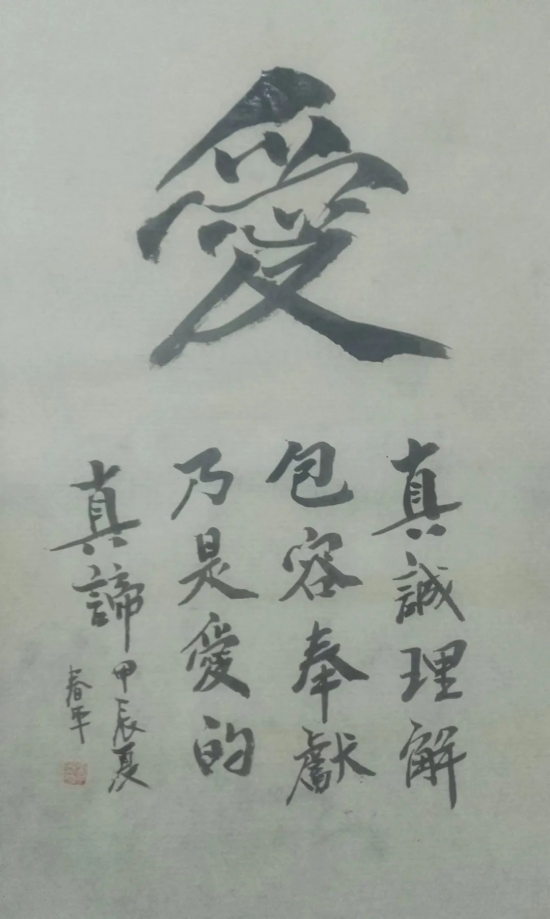 愛
真誠理解
包容奉獻
乃是愛的
真諦
甲辰夏
春平